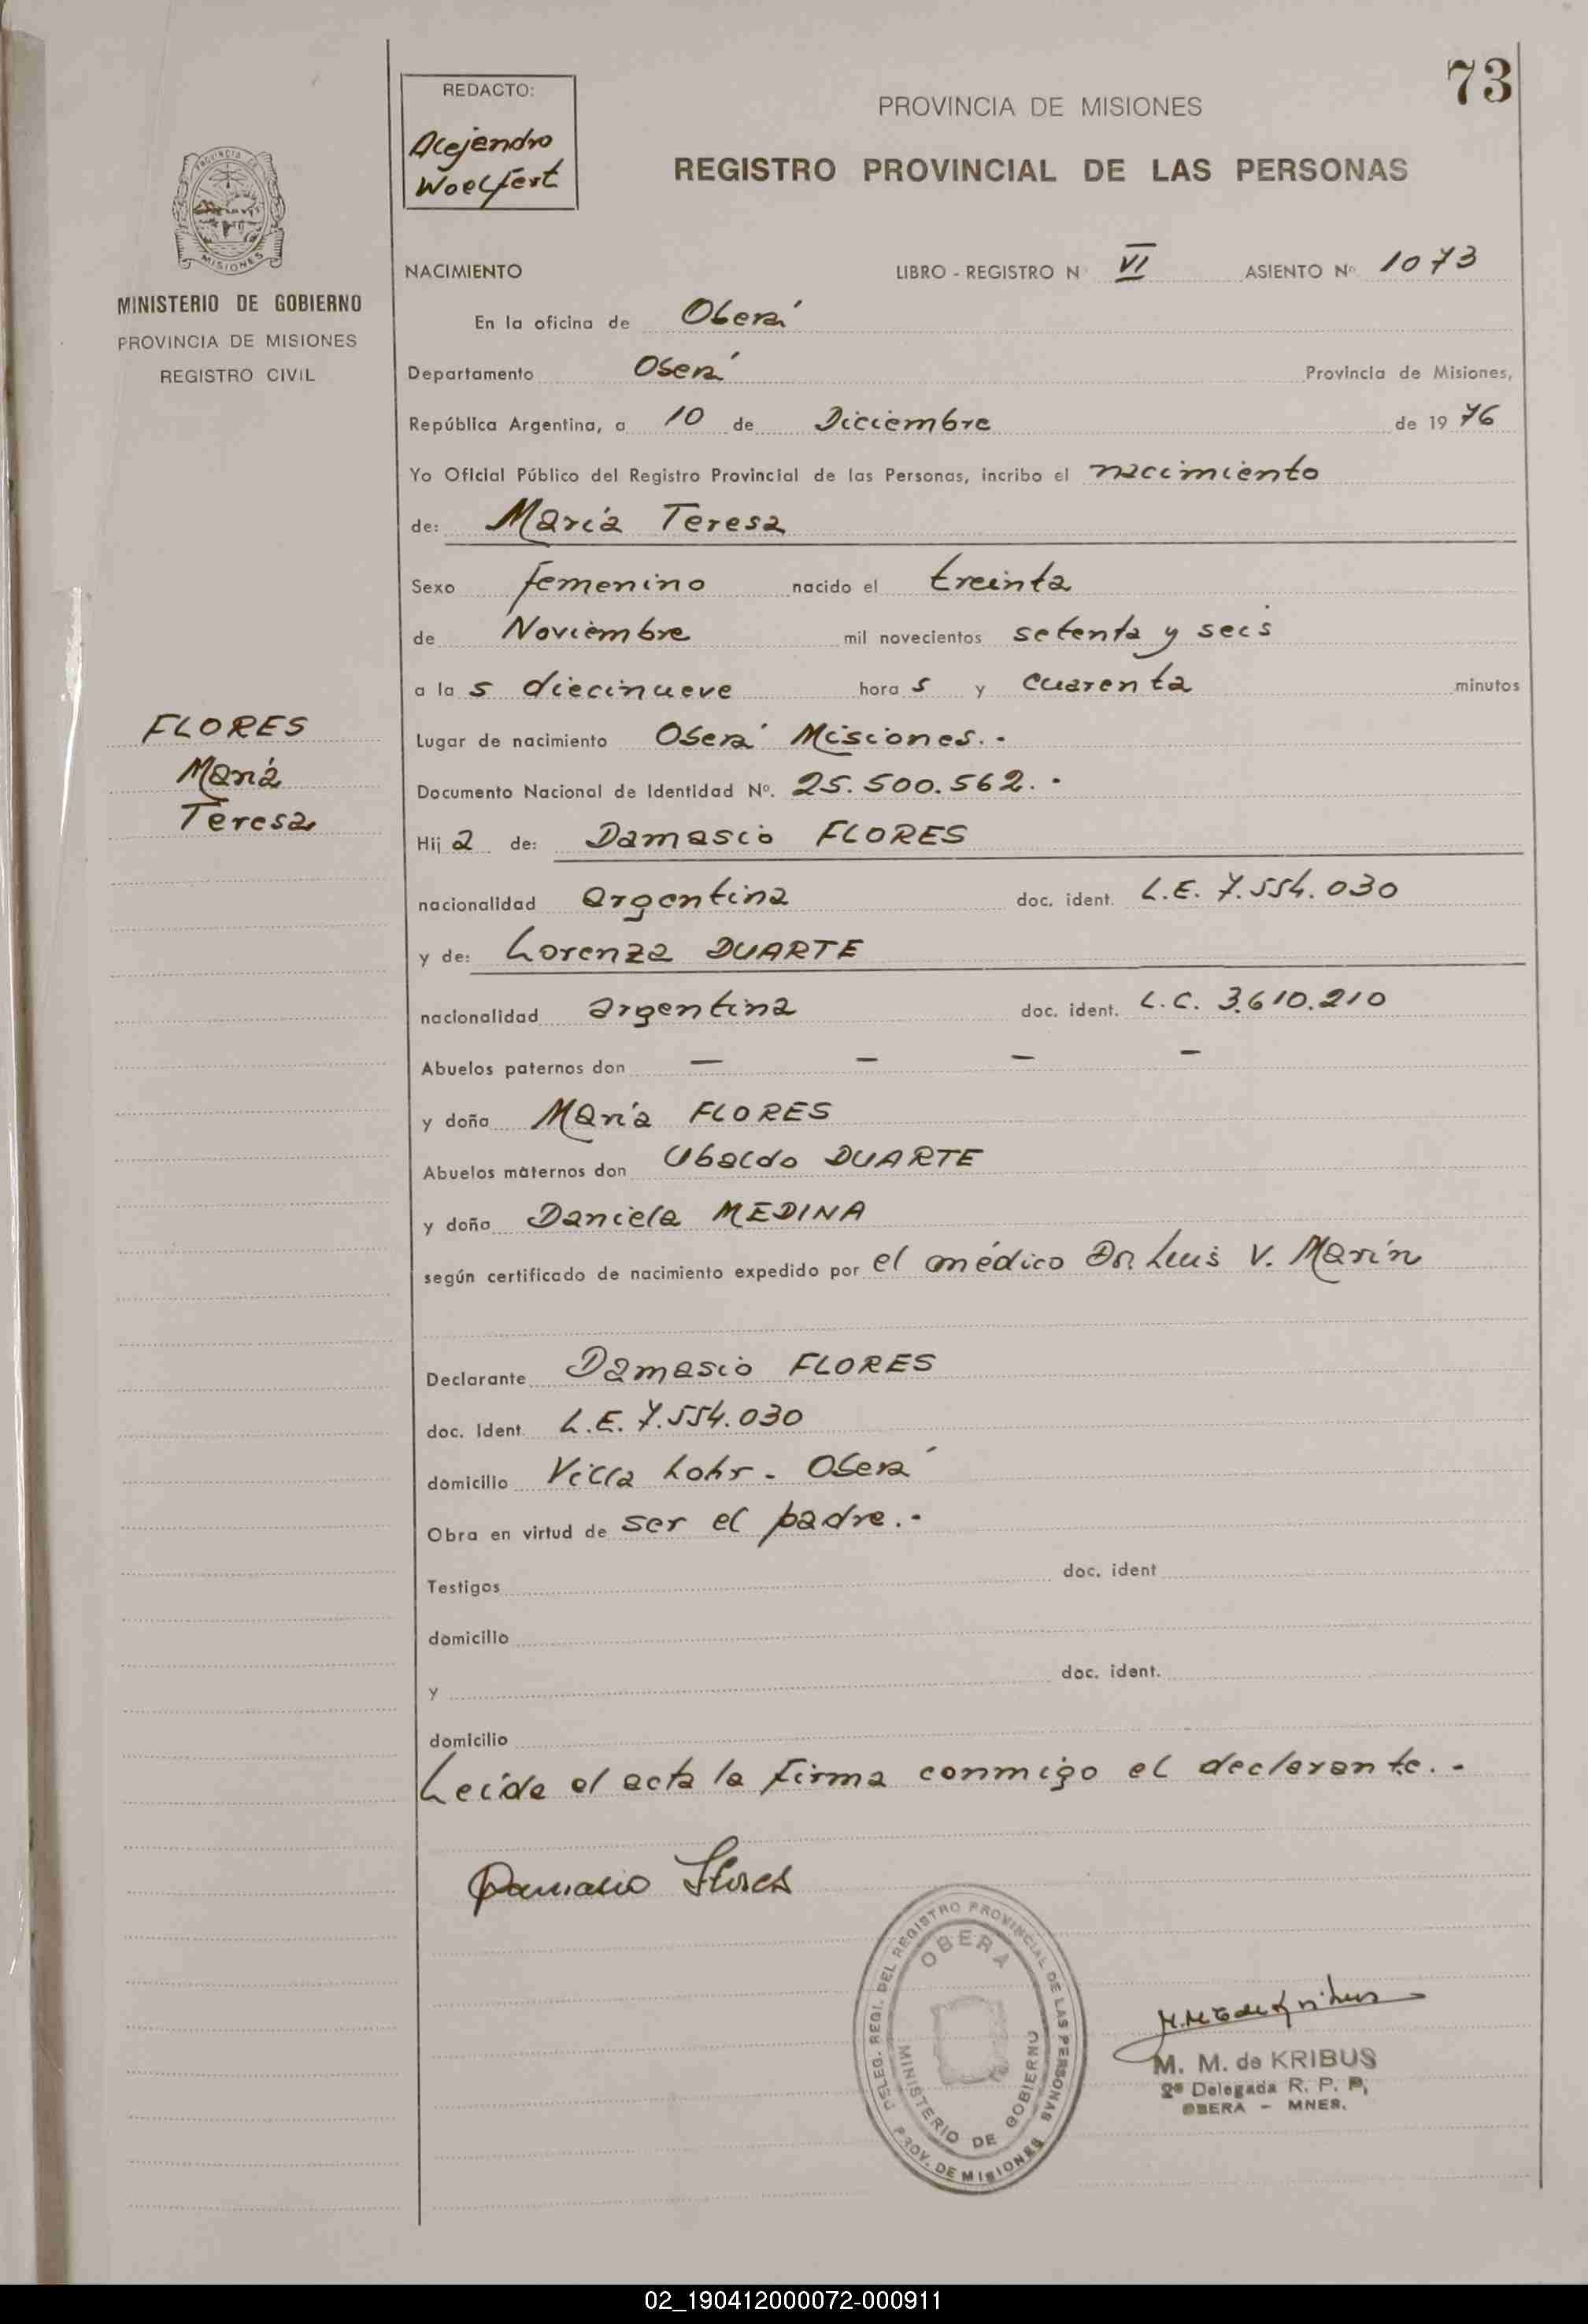 73
REDACTO:
Alejandro
Woelfert
PROVINCIA DE MISIONES
REGISTRO PROVINCIAL DE LAS PERSONAS
PROVINCIA DE
MISIONES
MINISTERIO DE GOBIERNO
PROVINCIA DE MISIONES
REGISTRO CIVIL
NACIMIENTO LIBRO - REGISTRO N VI ASIENTO Nº 1073
En la oficina de Oberá
Departamento Oberá Provincia de Misiones,
República Argentina, a 10 de Diciembre de 1976
Yo Oficial Público del Registro Provincial de las Personas, incribo el nacimiento
de: María Teresa
Sexo femenino nacido el treinta
de Noviembre mil novecientos setenta y seis
a las diecinueve horas y cuarenta minutos
FLORES
María
Teresa
Lugar de nacimiento Oberá Misiones.-
Documento Nacional de Identidad Nº. 25.500.562.-
Hija de: Damasio FLORES
nacionalidad argentina doc. ident. L.E. 7.554.030
y de: Lorenza DUARTE
nacionalidad argentina doc. ident. L.C. 3.610.210
Abuelos paternos don — — — —
y doña María FLORES
Abuelos maternos don Ubaldo DUARTE
y doña Daniela MEDINA
según certificado de nacimiento expedido por el médico Dr. Luis V. Marín
Declarante Damasio FLORES
doc. Ident. L.E. 7.554.030
domicilio Villa Lohr - Oberá
Obra en virtud de ser el padre.-
Testigos doc. ident
domicilio
y doc. ident.
domicilio
Leída el acta la firma conmigo el declarante.-
Damasio Flores
DELEG. REGI. DEL REGISTRO PROVINCIAL DE LAS PERSONAS
OBERA
MINISTERIO DE GOBIERNO
PROV. DE MISIONES
M. M. de KRIBUS
2ª Delegada R. P. P.
OBERA - MNES.
02_190412000072-000911